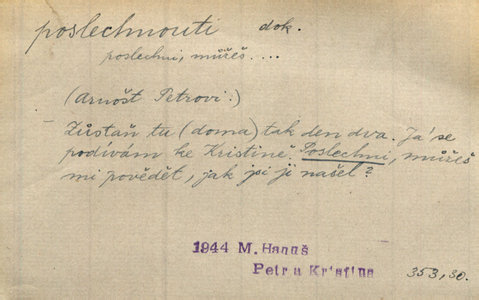 poslechnouti dok.
poslechni, můžeš....
(Arnošt Petrovi:)
Zůstaň tu (doma) tak den dva. Já se
podívám ke Kristině. Poslechni, můžeš
mi povědět, jak jsi ji našel?
1944 M. Hanuš
Petr a Kristina
353, 30.